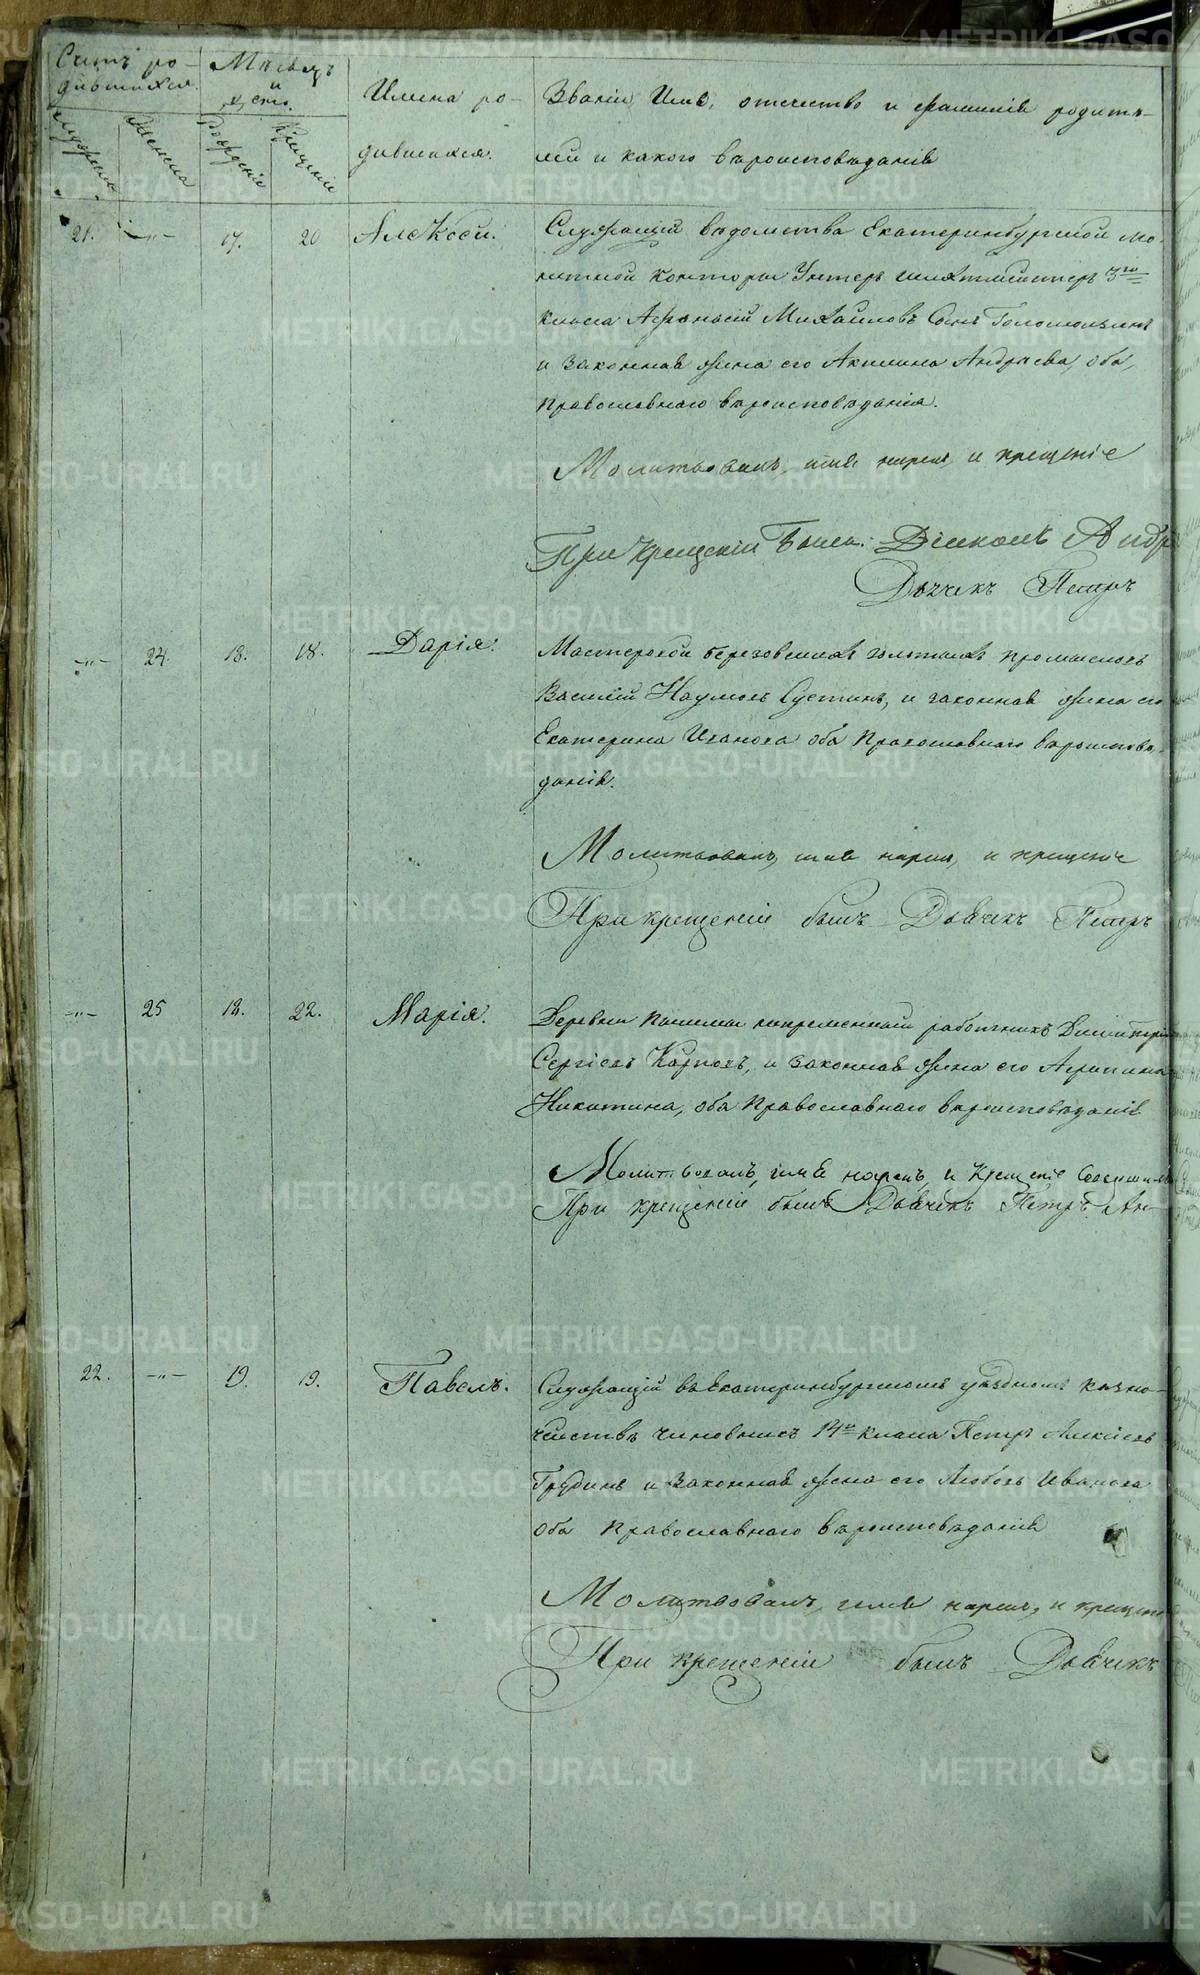 Счетъ ро-
дившихся.
Мѣсяцъ
и
день.
Имена ро-
дившихся.
Званіе, Имя, отечество и фамилія родите-
лей и какого вѣроисповѣданія
Мужеска
Женска
Рожденіе
Крещеніе
21. -„- 17. 20 Алексѣй. Служащій вѣдомства Екатеринбургской мо-
нетной конторы Унтеръ шихтмейстеръ 3го
класса Афонасій Михайловъ Сынъ
и законная жена его Акилина Андреева, оба,
Православнаго вѣроисповѣданія.
Молитвовалъ, имя нарекъ, и крещеніе
При крещеніи были: Діаконъ Андр
Дьячекъ Петръ
-„- 24. 18. 18. Дарія. Мастероваго березовскихъ золотыхъ промысловъ
Василій Наумовъ Сустинъ, и законная жена его
Екатерина Иванова оба Православнаго вѣроисповѣ-
данія.
Молитвовалъ, имя нарекъ, и крещеніе
При крещеніи былъ Дьячекъ Петръ
-„- 25 18. 22. Марія. Деревни непременный работникъ Димитрій
Сергіевъ Карповъ, и законная жена его Агрипина
Никитина, оба Православнаго вѣроисповѣданія
Молитвовалъ, имя нарекъ, и Крещеніе Совершилъ
При крещеніи былъ Дьячекъ Петръ Ан-
22. -„- 19. 19. Павелъ. Служащій въ Екатеринбургскомъ уѣздномъ казна-
чействѣ чиновникъ 14го класса Петръ Алексѣевъ
Грудинъ и законная жена его Любовь Иванова
оба Православнаго вѣроисповѣданія
Молитвовалъ, имя нарекъ, и крещеніе
При крещеніи былъ Дьячекъ
METRIKI.GASO-URAL.RU